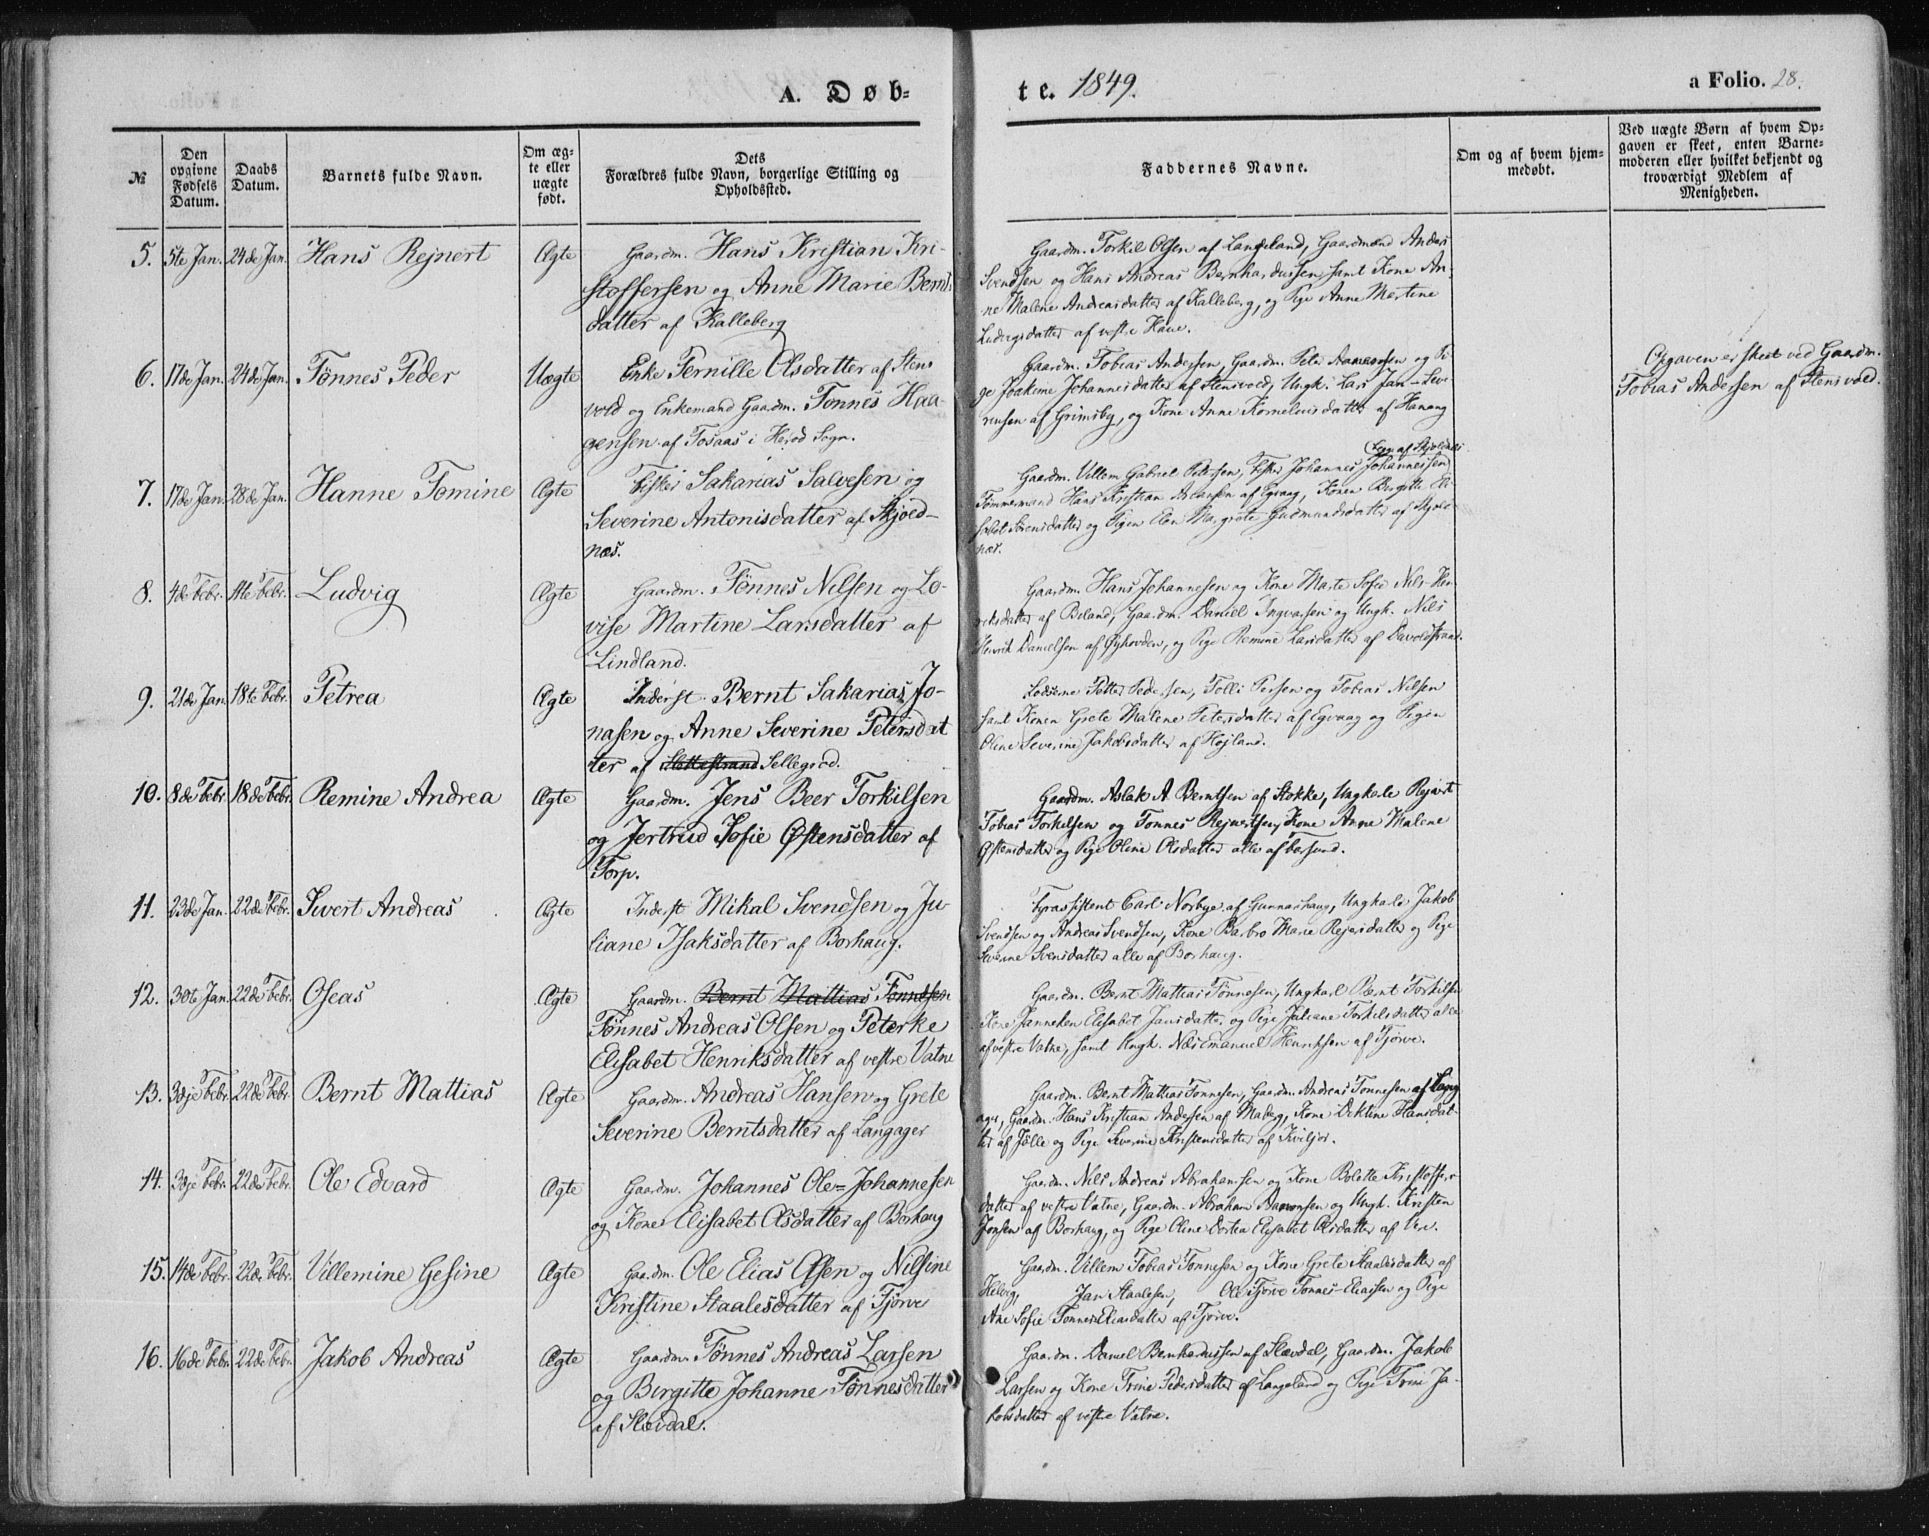 A. Døb-
te. 1849.
a Folio. 28.
№
Den opgivne Fødsels Datum.
Daabs Datum.
Barnets fulde Navn.
Om ægte eller uægte født.
Dets
Forældres fulde Navn, borgerlige Stilling og
Opholdssted.
Faddernes Navne.
Om og af hvem hjem-
medøbt.
Ved uægte Børn af hvem Op-
gaven er skeet, enten Barne-
moderen eller hvilket bekjendt og
troværdigt Medlem af
Menigheden.
5. 5te Jan. 24de Jan. Hans Rejnert Ægte Gaardm. Hans Kristian Kri-
stoffersen og Anne Marie Bernts
datter af Kalleberg
Gaardm. Torkil Olsen af Langeland, Gaardmænd Anders
Svendsen og Hans Andreas Bernhardussen, samt Kone An-
ne Malene Andreasdatter af Kalleberg, og Pige Anne Martine
Ludvigsdatter af vestre Haue.
6. 17de Jan. 24de Jan. Tønnes Peder Uægte Enke Pernille Olsdatter af Stens
vold og Enkemand Gaardm. Tønnes Haa-
gensen af Tosaas i Herød Sogn.
Gaardm. Tobias Andersen, Gaardm. Peter Aanensen og Pi
ge Joakime Johannesdatter af Stensvold, Ungk. Lars Jan Seve
rensen af Grimsby, og Kone Anne Korneliusdatter af Hanang
Opgaven er skeet ved Gaardm.
Tobias Andersen af Stensvold.
7. 17de Jan. 28de Jan. Hanne Tomine Ægte Fisker Sakarias Salvesen og
Severine Antonisdatter af Skjold-
næs.
Gaardm. Villem Gabriel Petersen, Fisker Johannes Johannessen
Tømmermand Hans Kristian Adamsen af Egvaag, Konen Birgitte Eli
sabet Sørensdatter og Pigen Elen Margrete Gudmundsdatter af Skjold
næs.
8. 4de Febr. 11te Febr. Ludvig Ægte Gaardm. Tønnes Nilsen og Lo-
vise Martine Larsdatter af
Lindland.
Gaardm. Hans Johannesen og Kone Marte Sofie Nils-Hen-
riksdatter af Beland, Gaardm. Daniel Ingvarsen og Ungk. Nils
Henrik Danielsen af Øyhovden, og Pige Remine Larsdatter af Davoldstrand.
9. 21de Jan. 18te Febr. Petrea Ægte Inderst Bernt Sakarias Jo-
nasen og Anne Severine Petersdat
ter af Slettestrand Sellegrod.
Lodserne Petter Pedersen, Tolli Persen og Tobias Nilsen
samt Konen Grete Malene Petersdatter af Egvaag og Pigen
Oline Severine Jakobsdatter af Højland.
10. 8de Febr. 18de Febr. Remine Andrea Ægte Gaardm. Jens Beer Torkilsen
og Jertrud Sofie Østensdatter af
Torp.
Gaardm. Aslak A Berntsen af Stokke, Ungkarle Rejnert
Tobias Torkelsen og Tønnes Rejnertsen, Kone Anne Malene
Østensdatter og Pige Oline Olsdatter alle af Farsund.
11. 23de Jan. 22de Febr. Sivert Andreas Ægte Inderst Mikal Svendsen og Ju-
liane Isaksdatter af Borhaug.
Fyrassistent Carl Norbye af Gunnarshaug, Ungkarle Jakob
Svendsen og Andreas Svendsen, Kone Barbro Marie Rejersdatter og Pige
Severine Svensdatter alle af Borhaug.
12. 30te Jan. 22de Febr. Oseas Ægte Gaardm. Bernt Mattias Tønnesen
Tønnes Andreas Olsen og Peterke
Elisabet Henriksdatter af vestre Vatne
Gaardm. Bernt Mathias Tønnesen, Ungkarl Bernt Torkilsen
Kone Janneken Elisabet Jansdatter og Pige Juliane Torkilsdatter alle
af vestre Vatne, samt Ungk. Nils Emanuel Henriksen af Tjørve.
13. 3dje Febr. 22de Febr. Bernt Mattias Ægte Gaardm. Andreas Hansen og Grete
Severine Berntsdatter af Langager
Gaardm. Bernt Mathias Tønnesen, Gaardm. Andreas Tønnesen af Lang
ager, Gaardm. Hans Kristian Andersen af Maberg, Kone Dektine Hansdat-
ter af Jølle og Pige Severine Kristensdatter af Kviljor.
14. 3dje Febr. 22de Febr. Ole Edvard Ægte Gaardm. Johannes Ole-Johannesen
og Kone Elisabet Olsdatter af Borhaug
Gaardm. Nils Andreas Abrahamsen og Kone Bolette Kristoffers-
datter af vestre Vatne, Gaardm. Abraham Aaronsen og Ungk. Kristen
Jonsen af Borhaug, og Pige Oline Dortea Elisabet Olsdatter af Ore.
15. 14de Febr. 22de Febr. Villemine Gesine Ægte Gaardm. Ole Elias Olsen og Nilsine
Kristine Staalesdatter af Tjørve
Gaardm. Villem Tobias Tønnesen og Kone Grete Staalesdatter af
Helvig, Jan Staalesen, Ole Tjørve Tønnes-Eliassen og Pige
Ane Sofie Tønnes-Eliasdatter af Tjørve.
16. 16de Febr. 22de Febr. Jakob Andreas Ægte Gaardm. Tønnes Andreas Larsen
og Birgitte Johanne Tønnesdatter
af Slævdal.
Gaardm. Daniel Bernhardussen af Slævdal, Gaardm. Jakob
Larsen og Kone Trine Pedersdatter af Langeland og Pige Trine Ja-
kobsdatter af vestre Vatne.